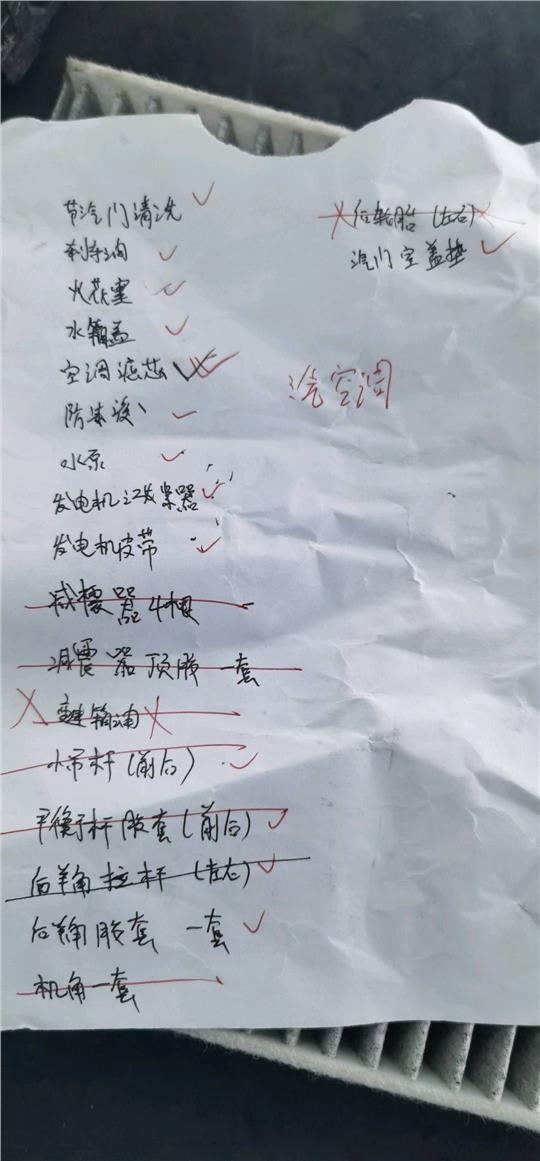 节汽门清洗
刹车油
火花塞
水箱盖
空调滤芯
防冻液
水泵
发电机涨紧器
发电机皮带
减震器4根
减震器顶胶 一套
变速箱油
小吊杆(前后)
平衡杆胶套(前后)
后羊角拉杆(左右)
后羊角胶套 一套
机角一套
后轮胎(左右)
汽门室盖垫
汽空调